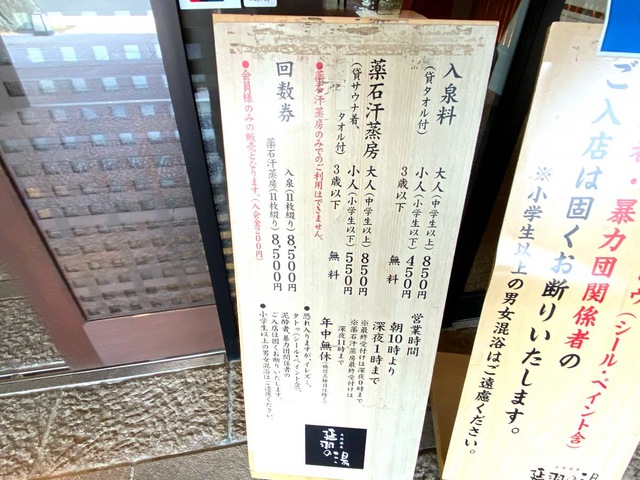 入泉料
(貸タオル付)
大人(中学生以上) 850円
小人(小学生以下) 450円
3歳以下 無料
薬石汗蒸房
(貸サウナ着、タオル付)
大人(中学生以上) 850円
小人(小学生以下) 550円
3歳以下 無料
●薬石汗蒸房のみでのご利用はできません。
回数券
入泉(11枚綴り) 8,500円
薬石汗蒸房(11枚綴り) 8,500円
●会員様のみの販売となります。(入会金200円)
営業時間
朝10時より
深夜1時まで
※最終受付は深夜0時まで
※薬石汗蒸房最終受付は
深夜11時まで
年中無休(施設点検日は除く)
●恐れ入りますが、イレズミ、
タトゥ(シール・ペイント含)、
泥酔者、暴力団関係者の
ご入店は固くお断りいたします。
●小学生以上の男女混浴はご遠慮ください。
延羽の湯
(シール・ペイント含)
者・暴力団関係者の
ご入店は固くお断りいたします。
※小学生以上の男女混浴はご遠慮ください。
延羽の湯